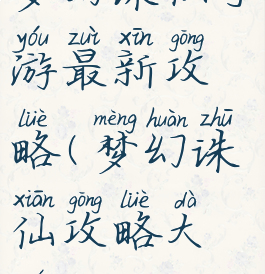 yóu zuì xīn gōng
游最新攻
lüè mèng huàn zhū
略(梦幻诛
xiān gōng lüè dà
仙攻略大